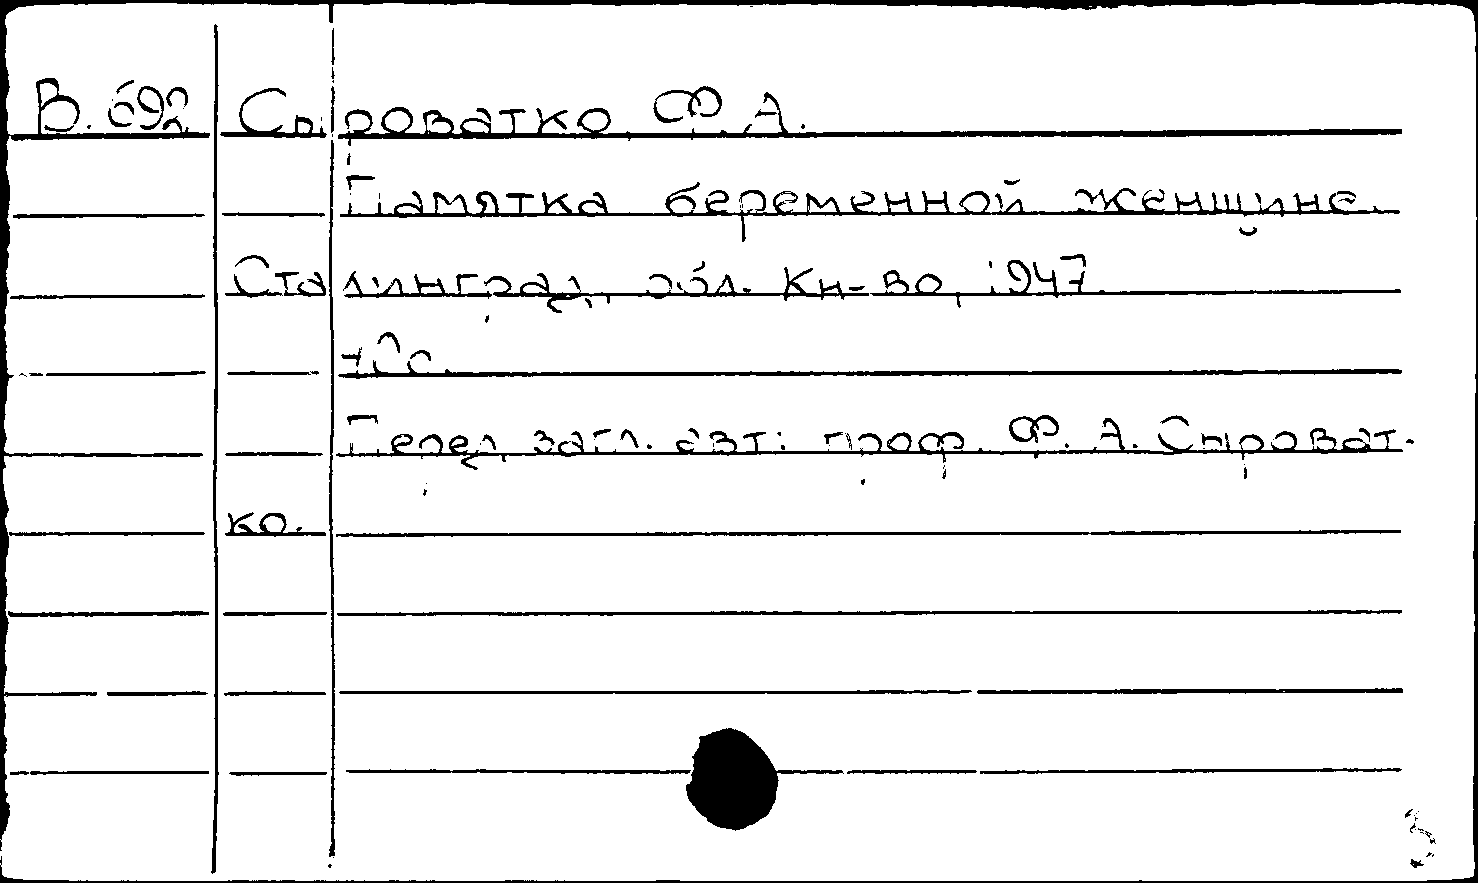 В. 692 Сыроватко, Ф. А.
Памятка беременной женщине.
Сталинград, обл. кн-во, 1947.
40с.
Перед загл. авт: проф. Ф. А. Сыроват-
ко.
3